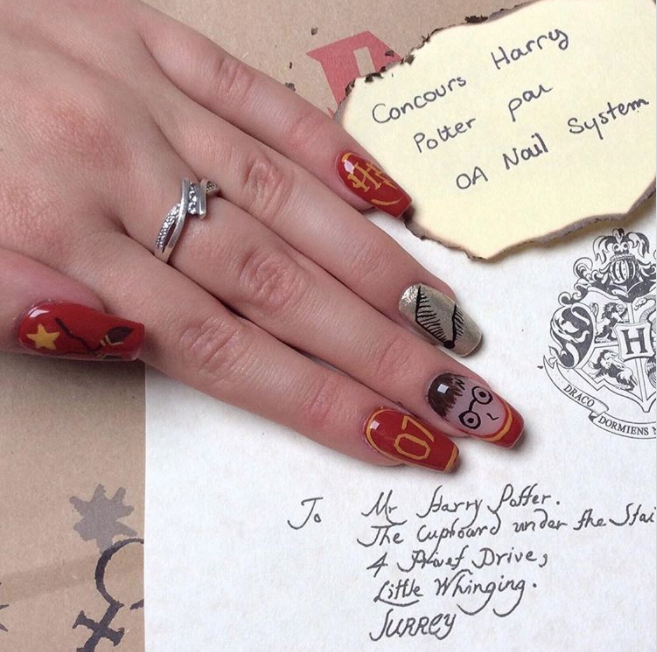 Concours Harry
Potter par
OA Nail System
HP
07
H
DRACO DORMIENS
To Mr Harry Potter.
The Cupboard under the Stai
4 Privet Drive,
Little Whinging.
SURREY